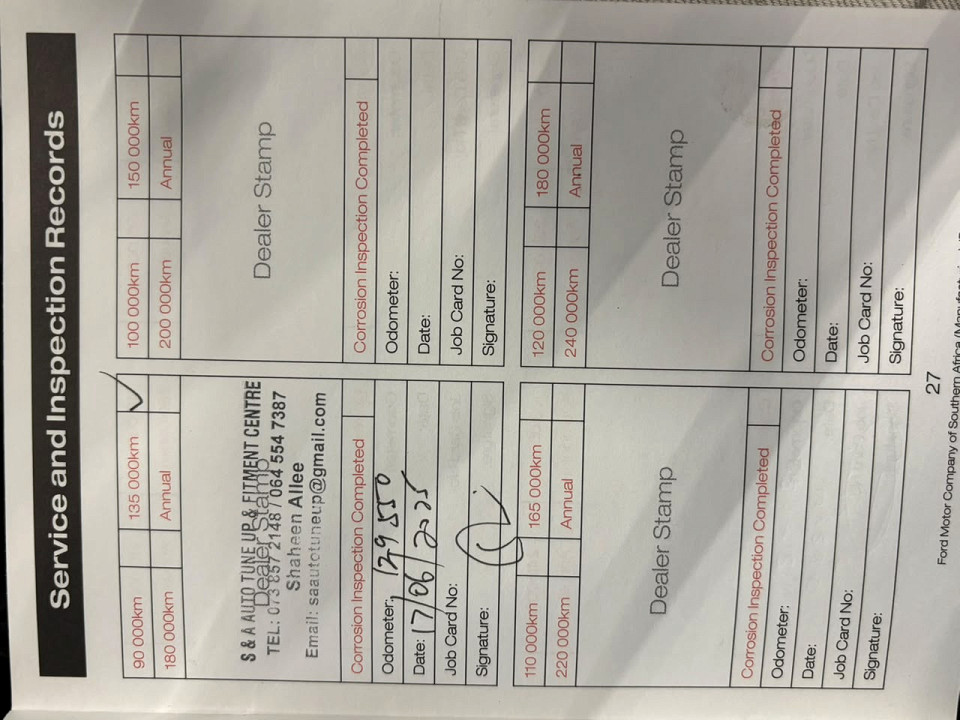 Service and Inspection Records
90 000km 135 000km ✓
180 000km Annual
Dealer Stamp
S & A AUTO TUNE UP & FITMENT CENTRE
TEL: 073 657 2148 / 064 554 7387
Shaheen Allee
Email: saautotuneup@gmail.com
Corrosion Inspection Completed
Odometer: 129 550
Date: 17/06/2025
Job Card No:
Signature:
100 000km 150 000km
200 000km Annual
Dealer Stamp
Corrosion Inspection Completed
Odometer:
Date:
Job Card No:
Signature:
110 000km 165 000km
220 000km Annual
Dealer Stamp
Corrosion Inspection Completed
Odometer:
Date:
Job Card No:
Signature:
120 000km 180 000km
240 000km Annual
Dealer Stamp
Corrosion Inspection Completed
Odometer:
Date:
Job Card No:
Signature:
27
Ford Motor Company of Southern Africa